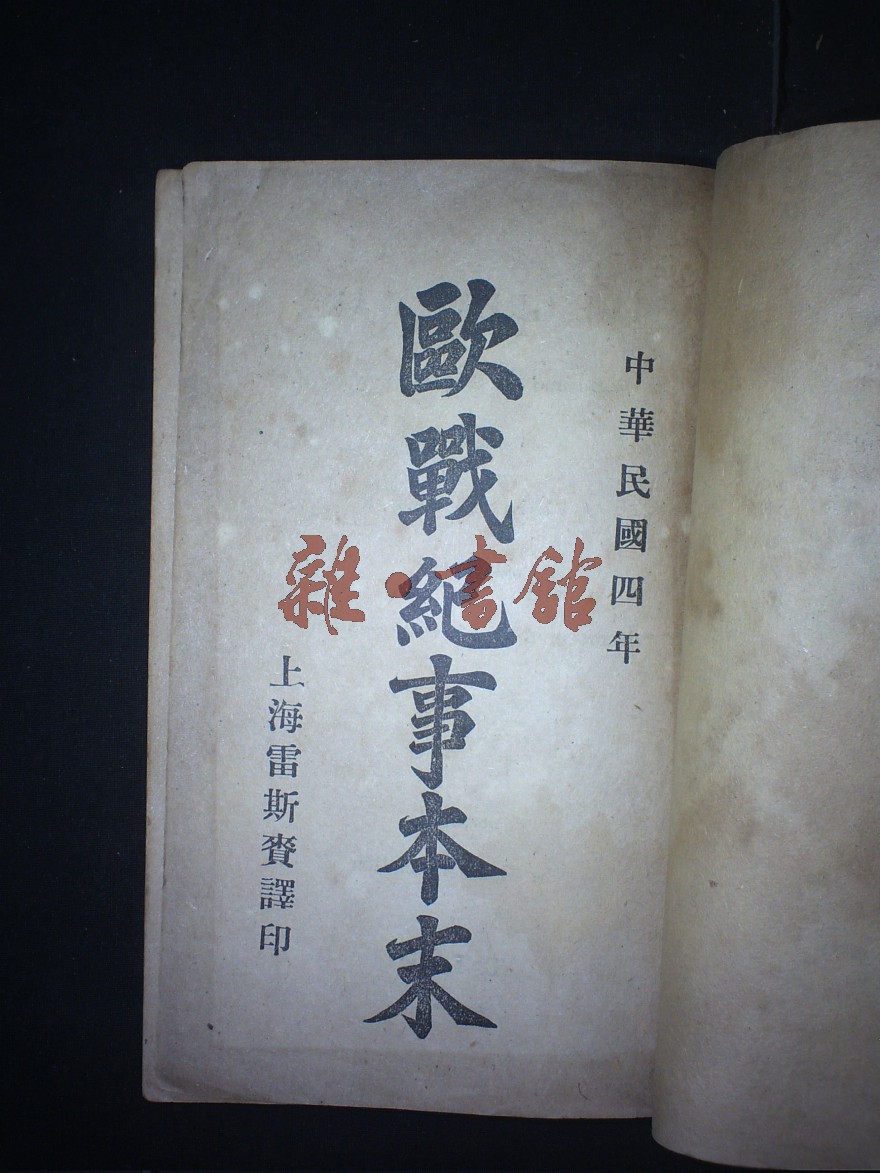 中華民國四年
歐戰紀事本末
上海雷斯賚譯印
雜·書館